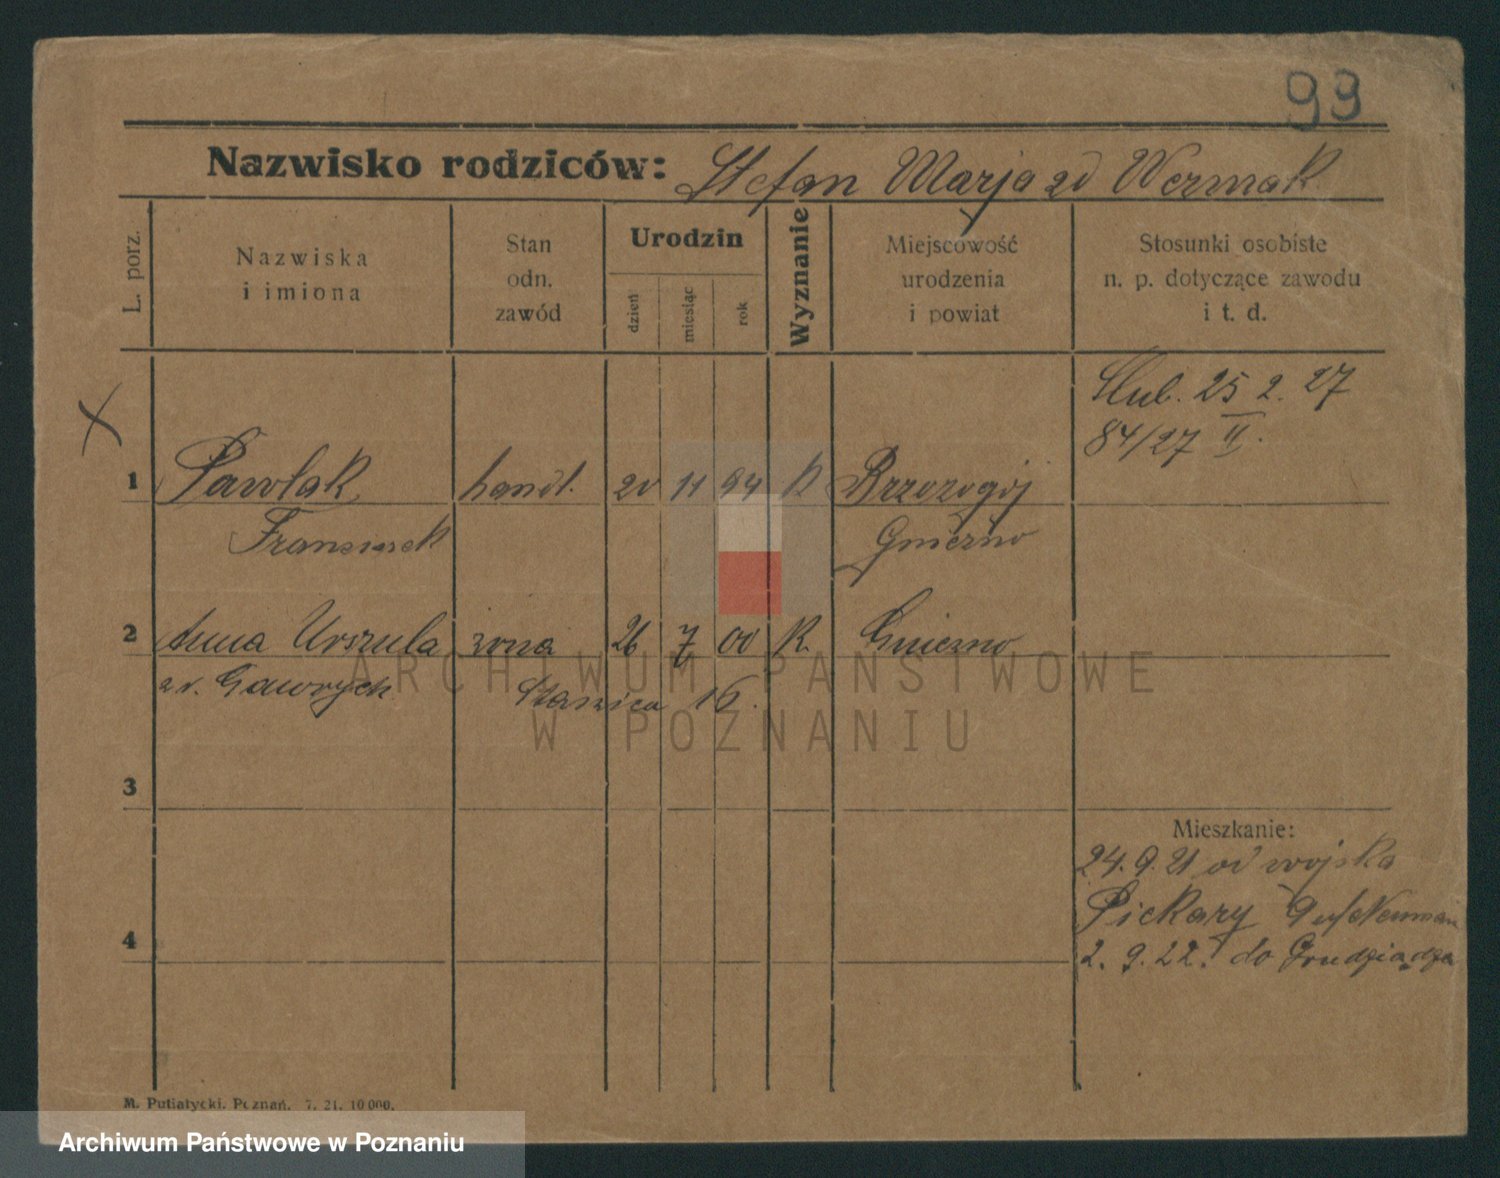 99
Nazwisko rodziców: Stefan Marja zd Wermak
L. porz.
Nazwiska
i imiona
Stan
odn.
zawód
Urodzin
dzień
miesiąc
rok
Wyznanie
Miejscowość
urodzenia
i powiat
Stosunki osobiste
n. p. dotyczące zawodu
i t. d.
Slub. 25 2. 27
84/27 II.
1 Pawlak handl. 20 11 94 K Brzozogój
Franciszek Gniezno
2 Anna Urszula żona 26 7 00 K. Gniezno
zd. Gawrych Staszica 16.
3
Mieszkanie:
24. 9. 21 od wojska
Piekary 9
4
2. 9. 22. do Grudziądza
M. Putiatycki, Poznań. 7. 21. 10 000.
ARCHIWUM PAŃSTWOWE
W POZNANIU
Archiwum Państwowe w Poznaniu